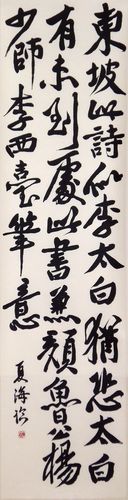 東坡此詩似李太白猶恐太白
有未到處此書兼顏魯公楊
少師李西臺筆意
夏海珍